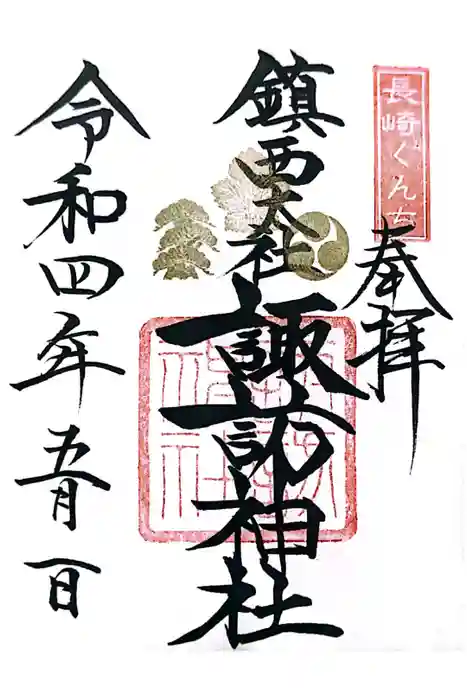 長崎くんち
奉拝
鎮西大社
諏訪神社
令和四年五月一日